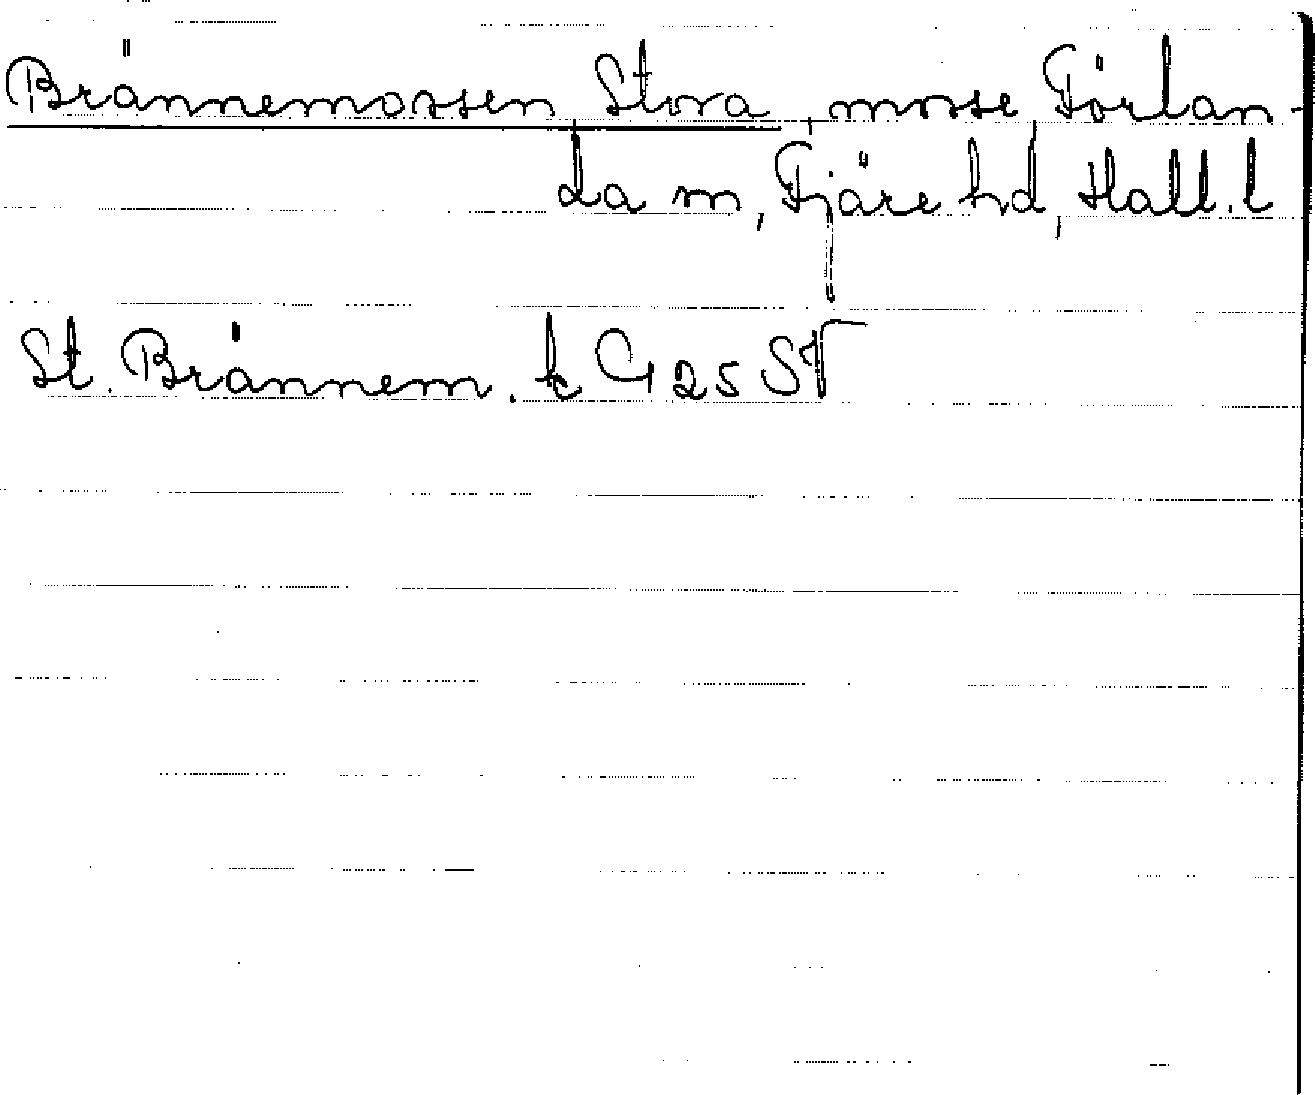 Brännemossen, Stora, mosse Förlan-
da sn, Fjäre hd, Hall. l
St. Brännem. tc G 25 SV